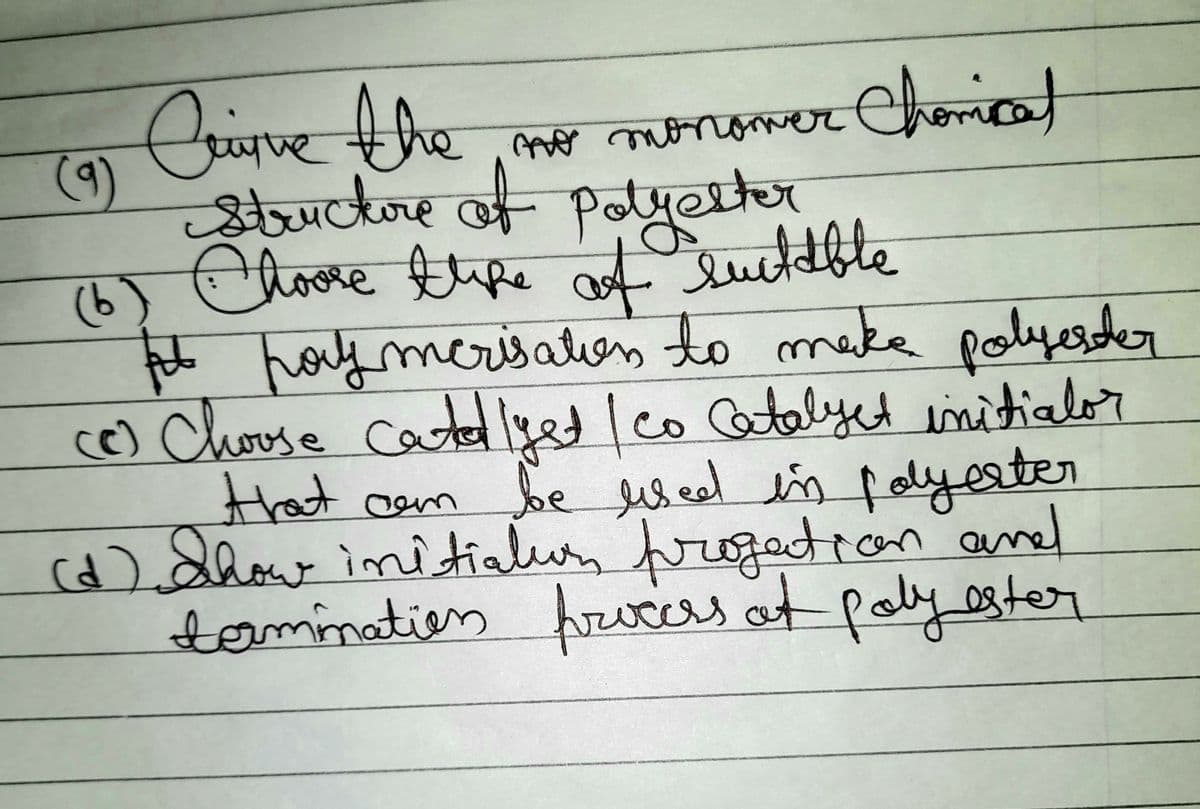 (a) Ceive the monomer Chemical
structure of polyester
(b) Choose tupe of suitdble
polymerisation to make polyester
(c) Choose Catallyst / co Catalyst initiator
that can be used in polyester
(d) Show initiation progection and
termination process of polyester